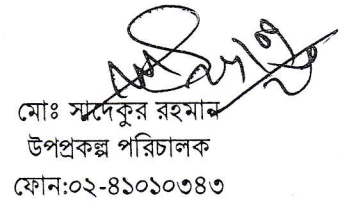 মোঃ সাদেকুর রহমান
উপপ্রকল্প পরিচালক
ফোন:০২-৪১০১০৩৪৩